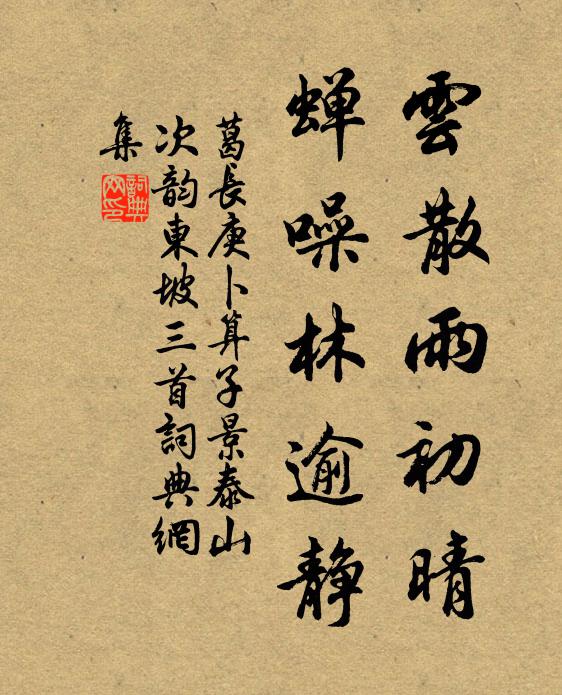 雲散雨初晴
蝉噪林逾静
葛長庚卜算子景泰山
次韵東坡三首詞典網
集
詞典
网印